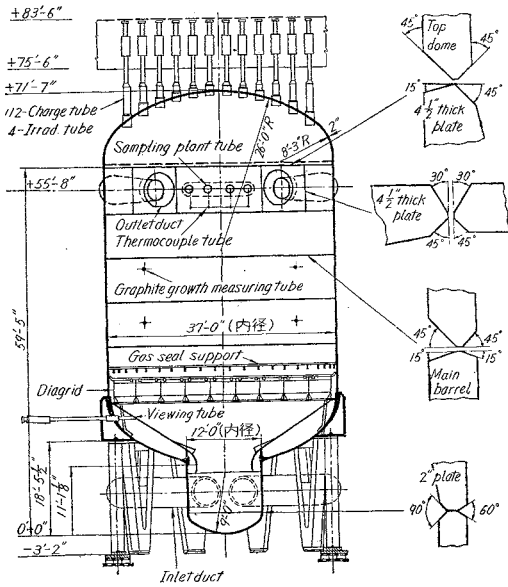 +83'-6"
+75'-6"
+71'-7"
112-Charge tube
4-Irrad. tube
Sampling plant tube
26'-0"R
8'-3"R
2"
+55'-8"
Outlet duct
Thermocouple tube
Graphite growth measuring tube
59'-5"
37'-0" (内径)
Gas seal support
Diagrid
Viewing tube
12'-0" (内径)
18'-5½"
11'-1⅛"
9'-0"
0'+0"
-3'-2"
Inlet duct
45°
Top
dome
45°
15°
45°
4½" thick
plate
30° 30°
4½" thick
plate
45° 45°
45° 45°
15° 15°
Main
barrel
2" plate
90° 60°